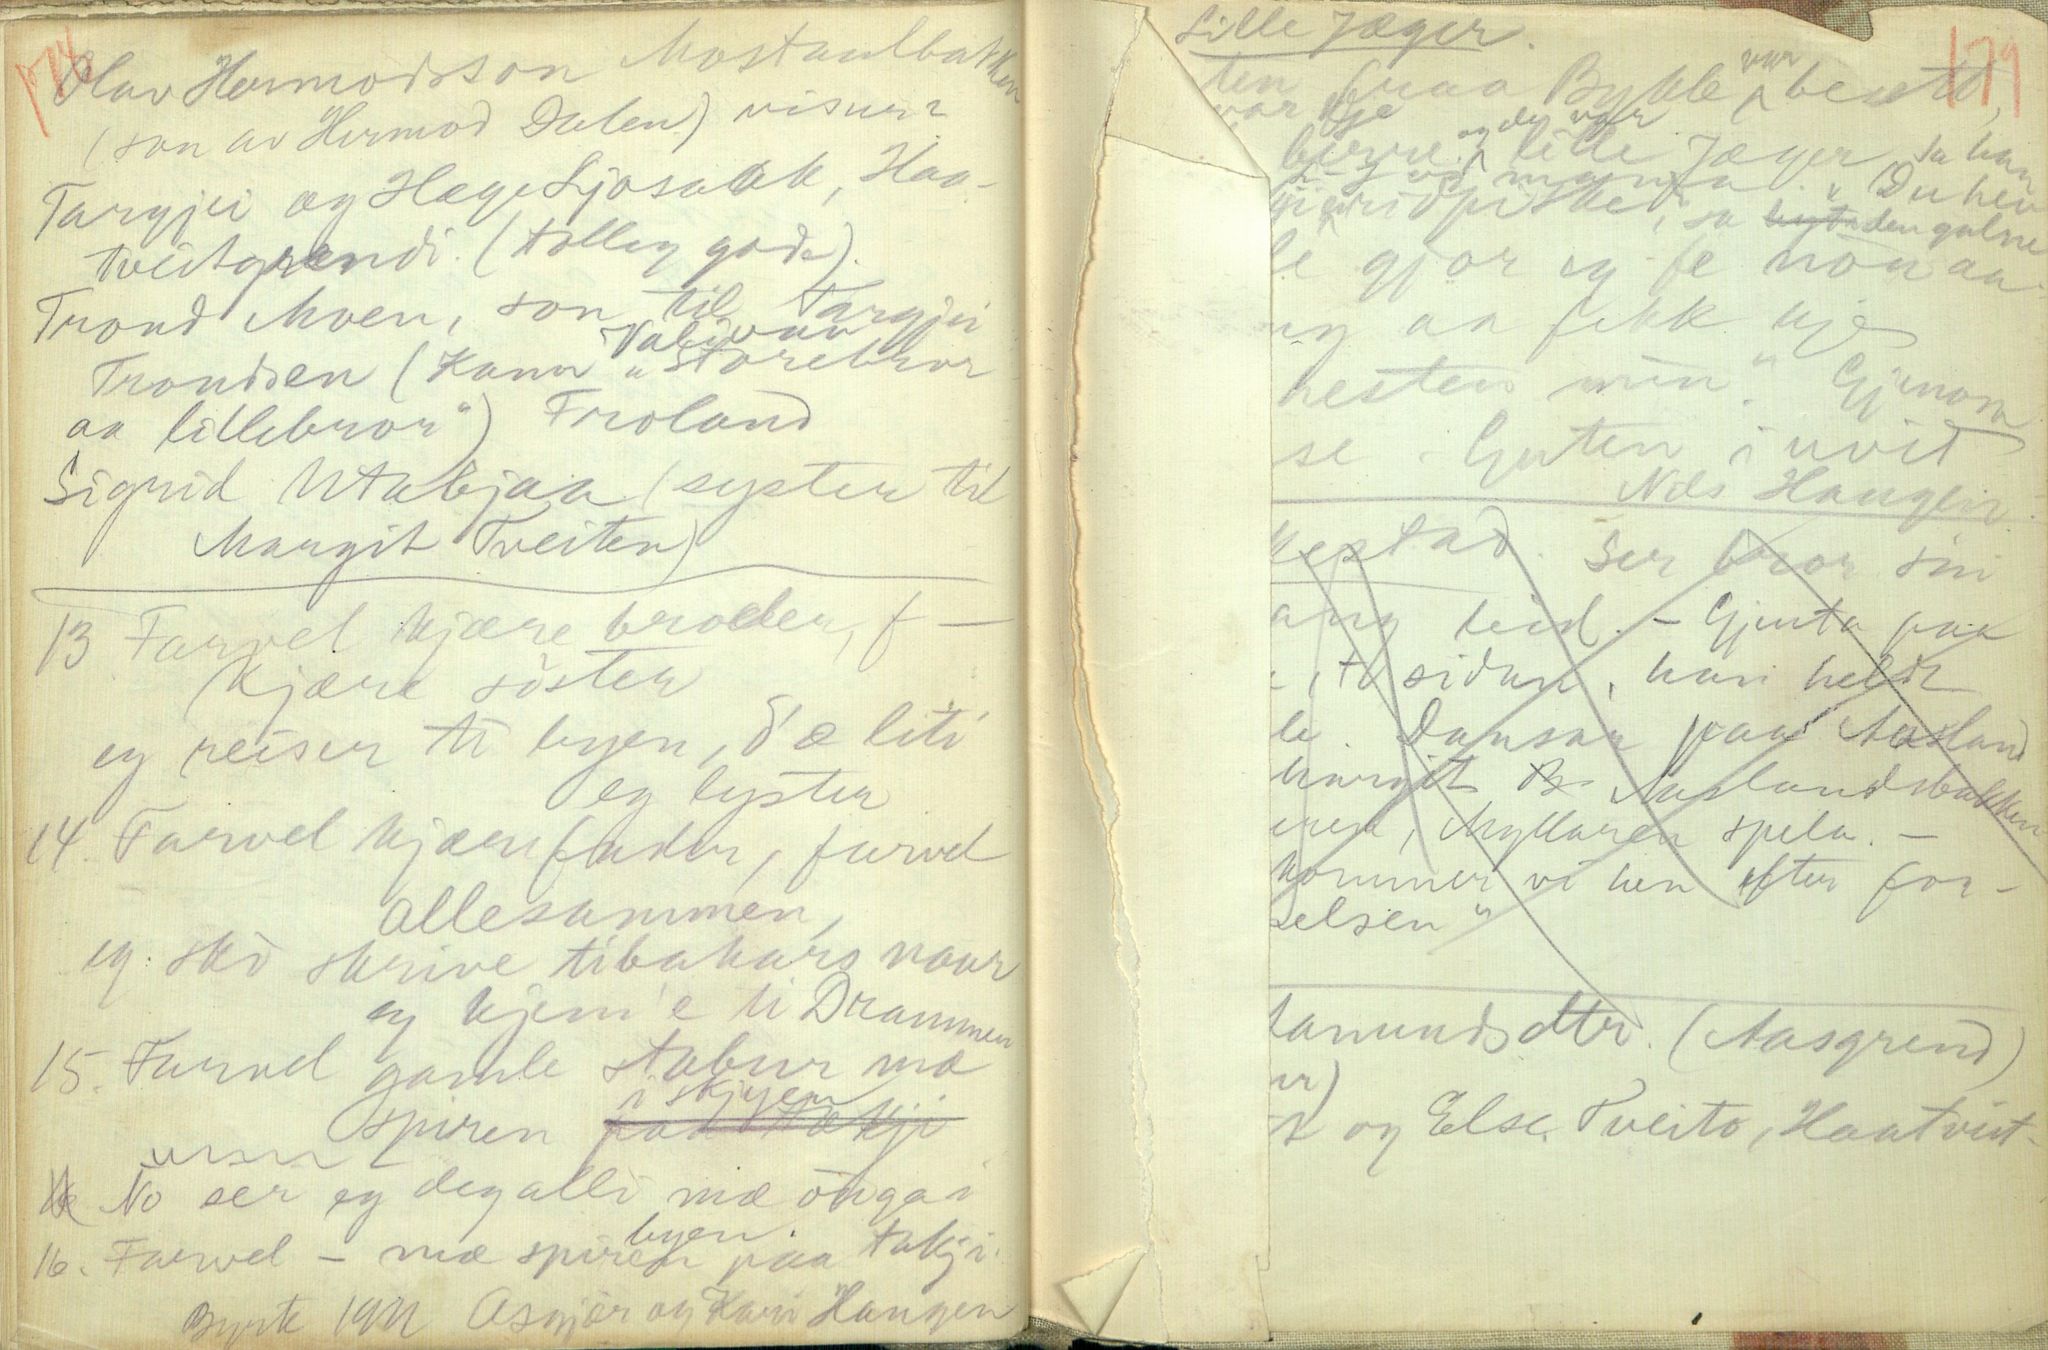 174
Olav Hermodsson Mostaulbakken
(son av Hermod Dalen) visurr
Targjei og Hæge Ljosaakk, Haa-
tveitgrendi. (tolleg goda).
Trond Moen, son til Targjei
Trondsen (Kann "Valivaar
"Storebror
aa lillebror") Froland
Sigrid Utabjaa (syster til
Margit Tveiten)
13 Farvel kjære broder, f —
kjære söster
eg reiser ti byen, d'æ liti
eg lyster
14. Farvel kjære fader, farvel
allesammen,
eg skò skrive tibakars naar
eg kjem'e ti Drammen
15. Farvel gamle stabur mæ
i skyen
spiren paa takji
No ser eg deg alli mæ önga i
byen.
16. Farvel – mæ spiren paa takji.
Byrte 1911 Asgjer og Kari Haugen
Lille Jæger.
179
ten fraa Bykle var besett,
var kje
og de var
berre lille Jæger, sa han
manna. "Du hev
ridpisked, sa den galne
le gjor eg fe nòn aa-
ng aa fekk kje
hesten min." Gjenom
se. Guten i uvit
Nils Haugen.
kestad. Ser bror sin
ang tid. – Gjenta paa
, te sidun, han heldt
le. Dansar paa Aasland
Margit Aaslandsbakken
, Myllaren spela. –
kommer vi hen efter for-
elsen"
amundsdtr. (Aasgrend)
ur)
og Else Tveito, Haatveit-